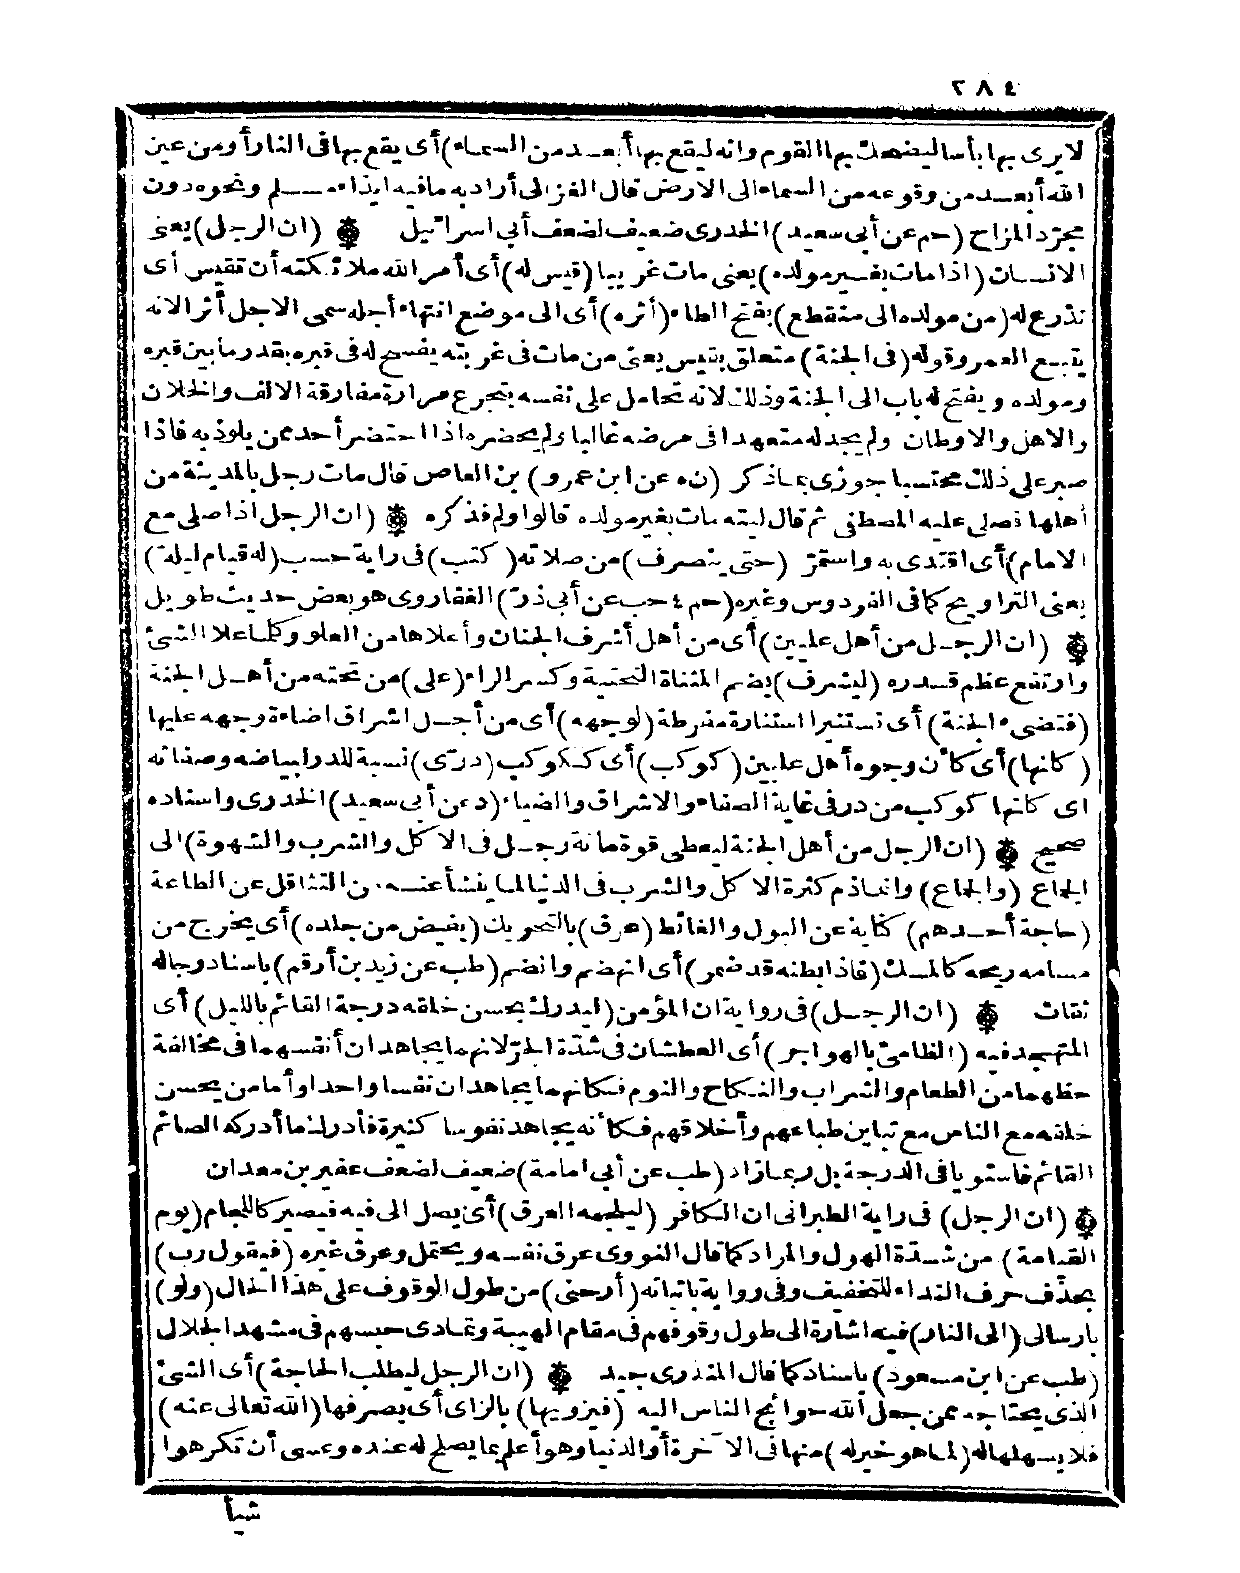 ٢٨٤
لا يرى بها بأسا ليضحك بها القوم وانه ليقع بها أبعد من السماء) أى يقع بها فى النار أو من عين
الله أبعد من وقوعه من السماء الى الارض قال الغزالى أراد به ما فيه ايذاء مسلم ونحوه دون
مجرّد المزاح (حم عن أبى سعيد) الخدرى ضعيف لضعف أبى اسرائيل (ان الرجل) يعنى
الانسان (اذا مات بغير مولده) يعنى مات غريبا (قيس له) أى أمر الله ملائكته أن تقيس أى
تذرع له (من مولده الى منقطع) بفتح الطاء (أثره) أى الى موضع انتهاء أجله سمى الاجل أثرالانه
يتبع العمر وقوله (فى الجنة) متعلق بقيس يعنى من مات فى غربته يفسح له فى قبره بقدر ما بين قبره
ومولده ويفتح له باب الى الجنة وذلك لانه تحامل على نفسه بتجرع مرارة مفارقة الالف والخلان
والاهل والاوطان ولم يجد له متعهدا فى مرضه غالبا ولم يحضره اذا احتضر أحد ممن يلوذ به فاذا
صبر على ذلك محتسبا جوزى بماذكر (ن ه عن ابن عمرو) بن العاص قال مات رجل بالمدينة من
أهلها فصلى عليه المصطفى ثم قال ليته مات بغير مولده قالوا ولم فذكره (ان الرجل اذا صلى مع
الامام) أى اقتدى به واستمرّ (حتى ينصرف) من صلاته (كتب) فى راية حسب (له قيام ليلة)
يعنى التراويح كما فى الفردوس وغيره (حم ٤ حب عن أبى ذرّ) الغفاروى هو بعض حديث طويل
(ان الرجل من أهل عليين) أى من أهل أشرف الجنان وأعلاها من العلو وكلما علا الشئ
وارتفع عظم قدره (ليشرف) بضم المثناة التحتية وكسر الراء (على) من تحته من أهل الجنة
(فتضىء الجنة) أى تستنير استنارة مفرطة (لوجهه) أى من أجل اشراق اضاءة وجهه عليها
(كانها) أى كأن وجوه أهل عليين (كوكب) أى ككوكب (درّى) نسبة للدر لبياضه وصفائه
اى كانها كوكب من در فى غاية الصفاء والاشراق والضياء (د عن أبى سعيد) الخدرى واسناده
صحيح (ان الرجل من أهل الجنة ليعطى قوة مائة رجل فى الاكل والشرب والشهوة) الى
الجماع (والجماع) وانما ذم كثرة الاكل والشرب فى الدنيا لما ينشأ عنه من التثاقل عن الطاعة
(حاجة أحدهم) كناية عن البول والغائط (عرق) بالتحريك (يفيض من جلده) أى يخرج من
مسامه ريحه كالمسك (فاذا بطنه قد ضمر) أى انهضم وانضم (طب عن زيد بن أرقم) باسناد رجاله
ثقات (ان الرجل) فى رواية ان المؤمن (ليدرك بحسن خلقه درجة القائم بالليل) أى
المتهجد فيه (الظامئ بالهواجر) أى العطشان فى شدّة الحرّ لانهما يجاهدان أنفسهما فى مخالفة
حظهما من الطعام والشراب والنكاح والنوم فكانهما يجاهدان نفسا واحدا وأما من يحسن
خلقه مع الناس مع تباين طباعهم وأخلاقهم فكأنه يجاهد نفوسا كثيرة فأدرك ما أدركه الصائم
القائم فاستويا فى الدرجة بل ربما زاد (طب عن أبى امامة) ضعيف لضعف عفير بن معدان
(ان الرجل) فى راية الطبرانى ان الكافر (ليلجمه العرق) أى يصل الى فيه فيصير كاللجام (يوم
القيامة) من شدّة الهول والمراد كما قال النووى عرق نفسه ويحتمل وعرق غيره (فيقول رب)
بحذف حرف النداء للتخفيف وفى رواية باثباته (أرحنى) من طول الوقوف على هذا الحال (ولو)
بارسالى (الى النار) فيه اشارة الى طول وقوفهم فى مقام الهيبة وتمادى حبسهم فى مشهد الجلال
(طب عن ابن مسعود) باسناد كما قال المنذرى جيد (ان الرجل ليطلب الحاجة) أى الشئ
الذى يحتاجه ممن جعل الله حوائج الناس اليه (فيزويها) بالزاى أى يصرفها (الله تعالى عنه)
فلا يسهلها له (لما هو خير له) منها فى الآخرة أو الدنيا وهو أعلم بما يصلح له عنده وعسى أن تكرهوا
شيأ